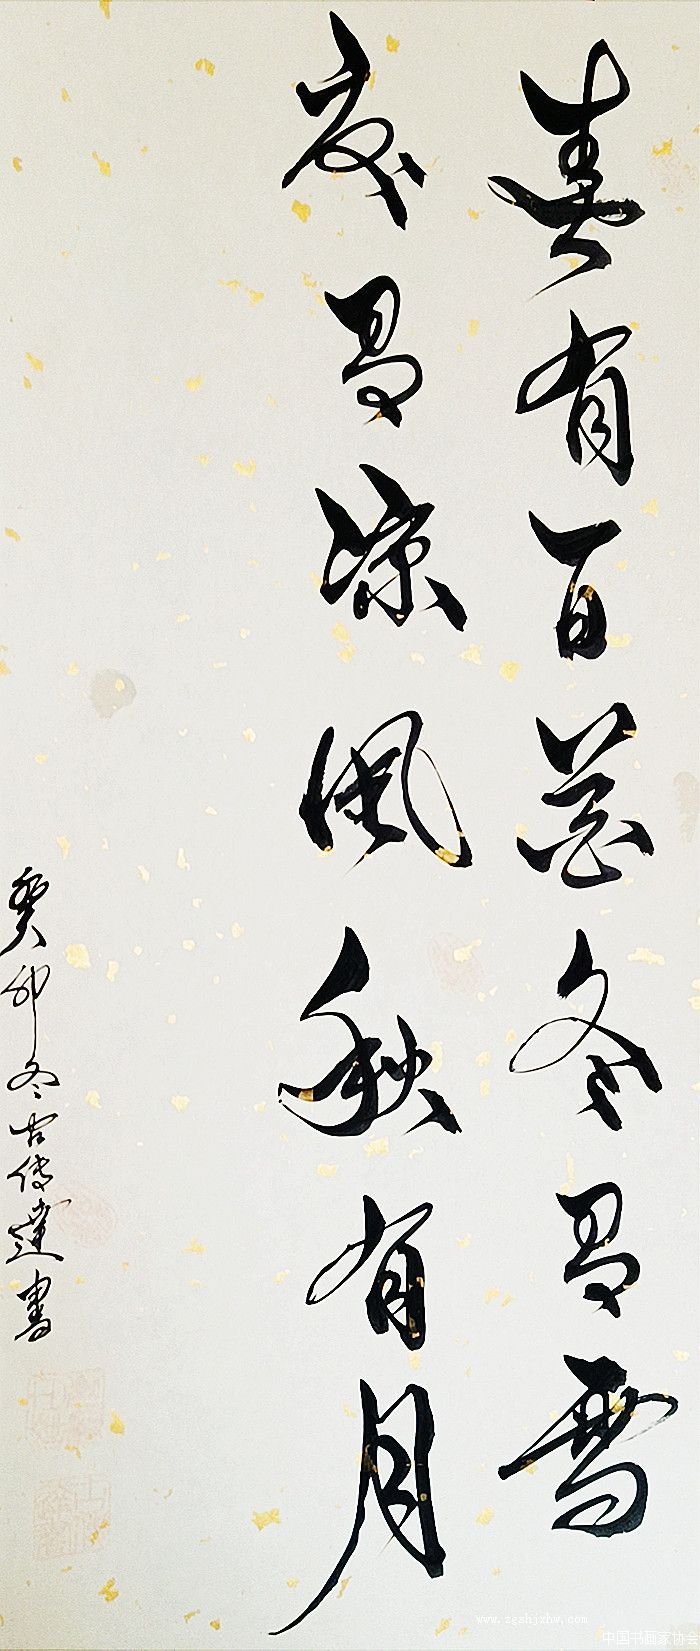 春有百花冬有雪
夏有凉風秋有月
癸卯冬古傳達書
www.zgshjxhw.com
中国书画家协会